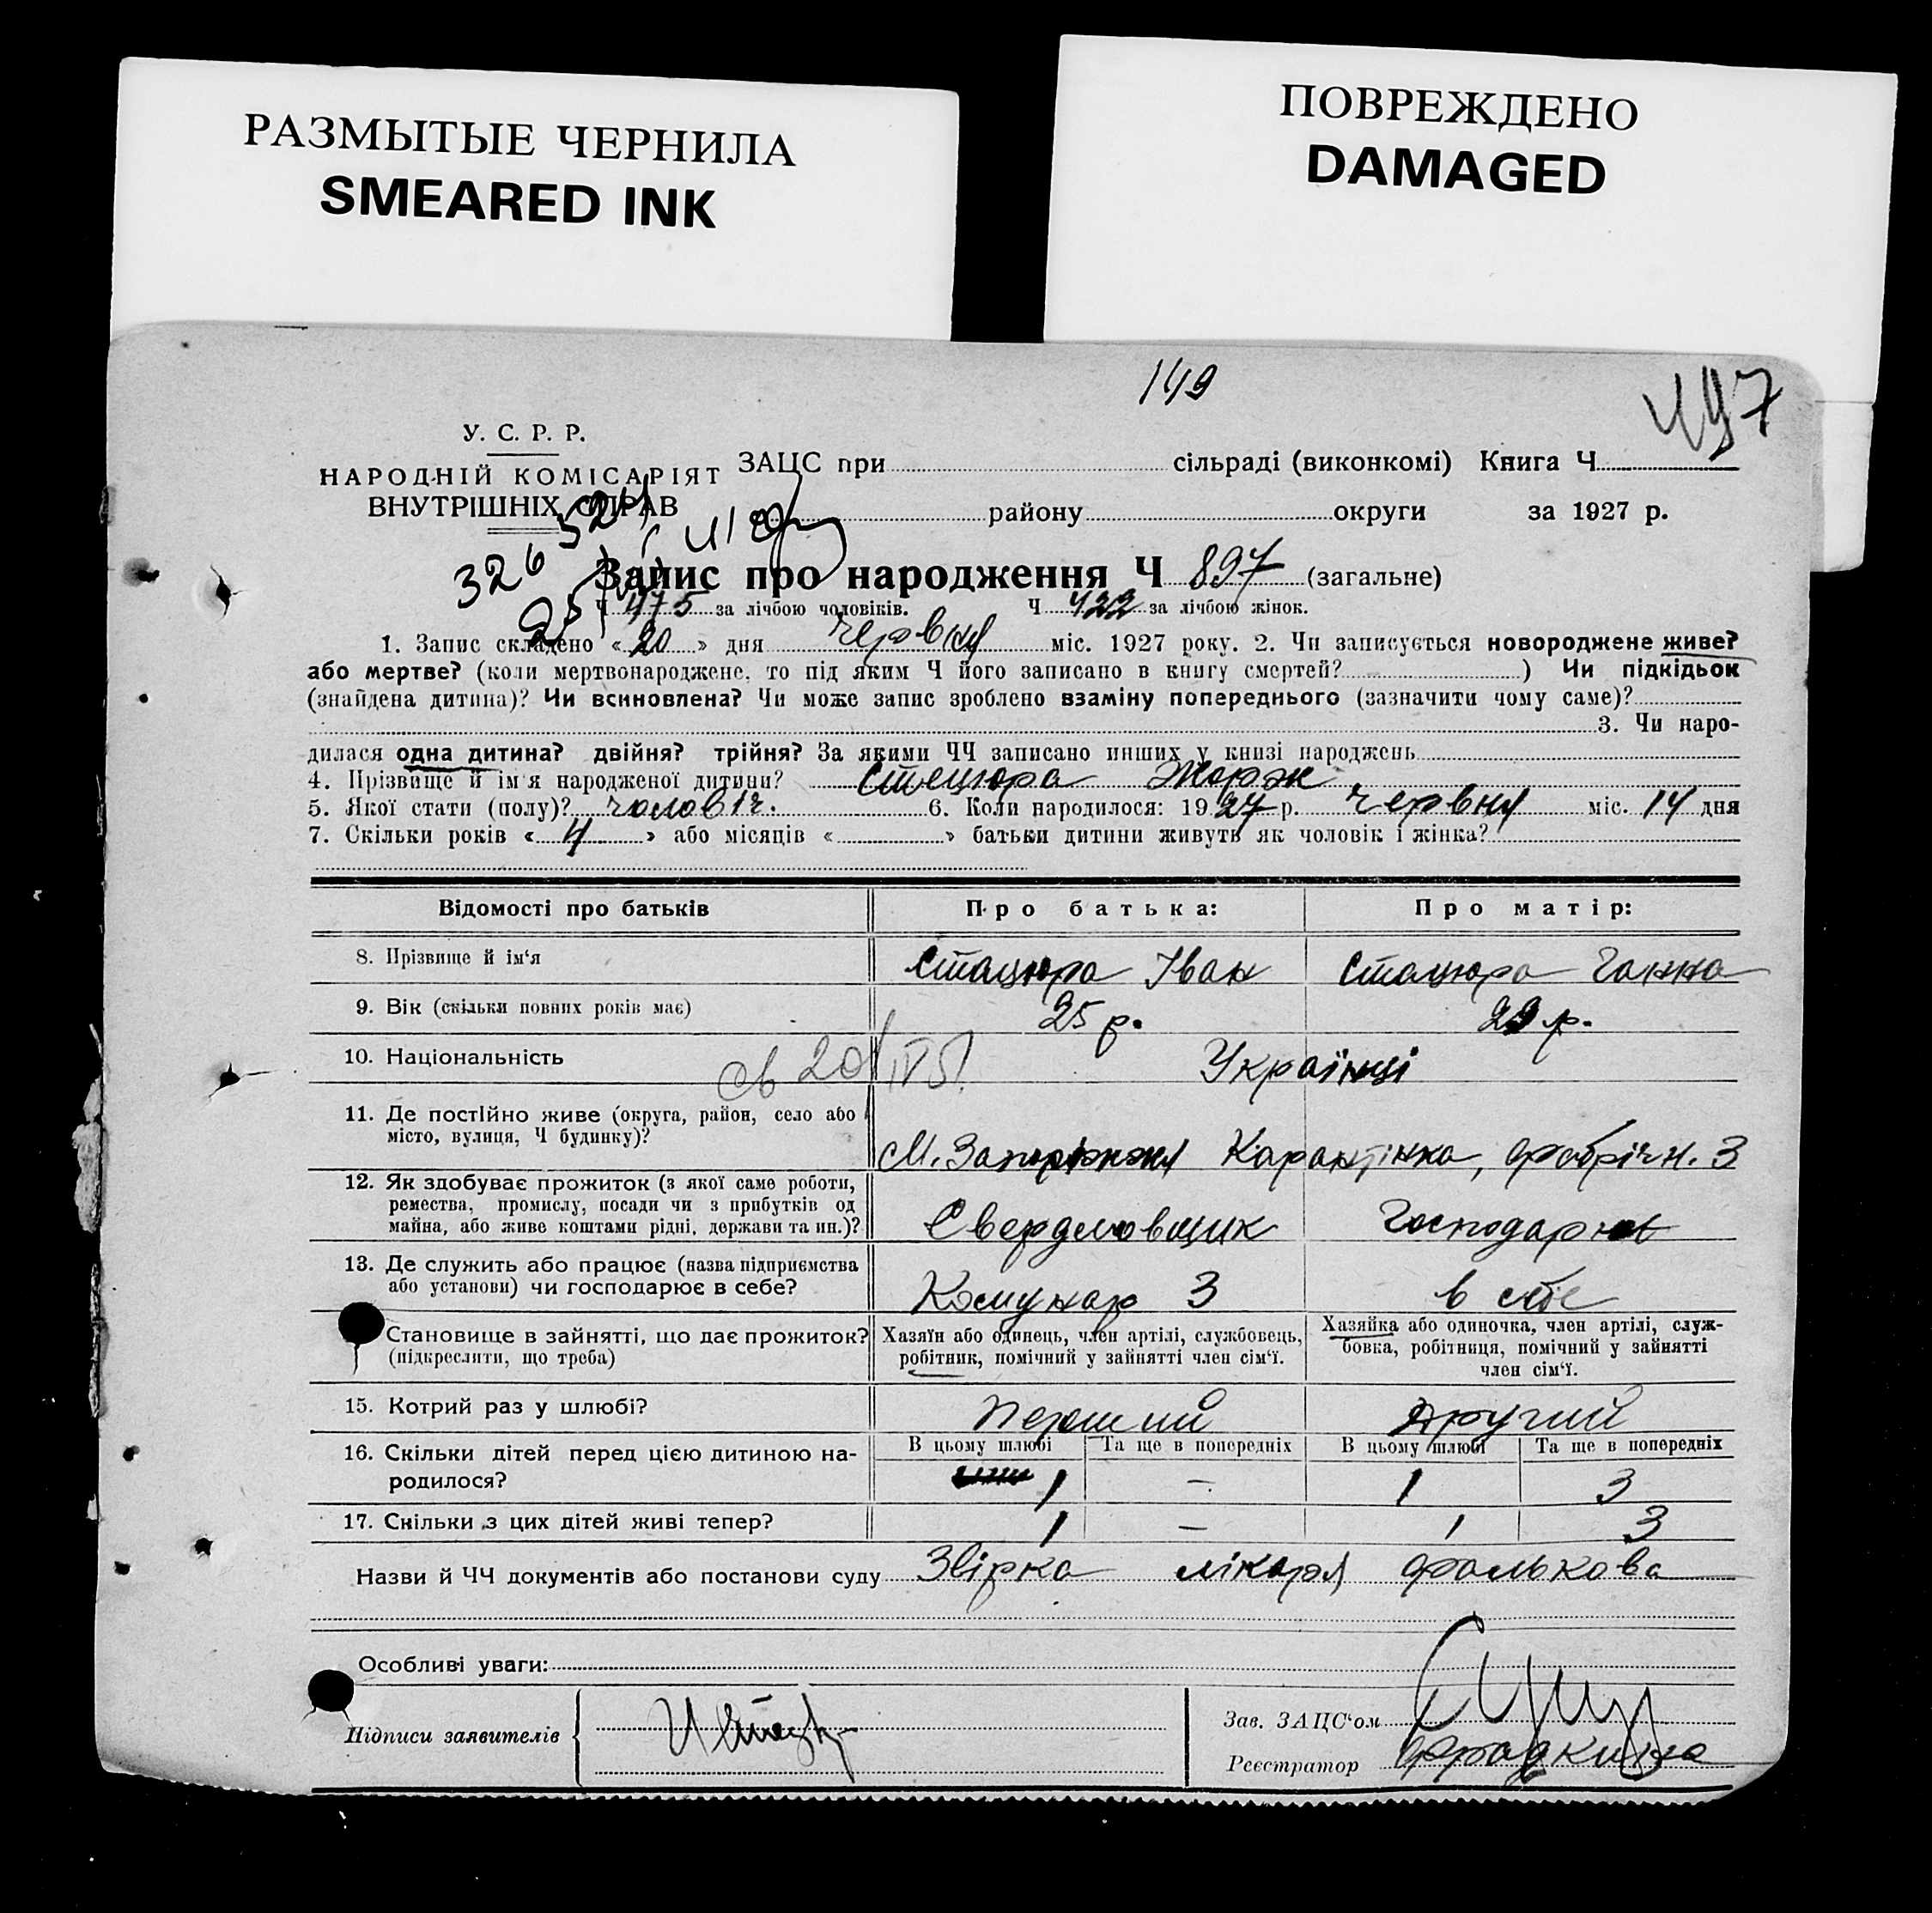 РАЗМЫТЫЕ ЧЕРНИЛА
SMEARED INK
ПОВРЕЖДЕНО
DAMAGED
149
447
У. С. Р. Р.
НАРОДНІЙ КОМІСАРІЯТ
ВНУТРІШНІХ СПРАВ
ЗАЦС при сільраді (виконкомі) Книга Ч
району округи за 1927 р.
326
Запис про народження Ч 897 (загальне)
Ч 475 за лічбою чоловіків. Ч 422 за лічбою жінок.
1. Запис складено « 20 » дня червня міс. 1927 року. 2. Чи записується новороджене живе?
або мертве? (коли мертвонароджене, то під яким Ч його записано в книгу смертей? ) Чи підкідьок
(знайдена дитина)? Чи всиновлена? Чи може запис зроблено взаміну попереднього (зазначити чому саме)?
3. Чи наро-
дилася одна дитина? двійня? трійня? За якими ЧЧ записано инших у книзі народжень
4. Прізвище й ім'я народженої дитини? Стецюра Жорж
5. Якої стати (полу)? чоловіч. 6. Коли народилося: 1927 р. червня міс. 14 дня
7. Скільки років « 4 » або місяців « » батьки дитини живуть як чоловік і жінка?
Відомості про батьків Про батька: Про матір:
8. Прізвище й ім'я Стацюра Іван Стацюра Ганна
9. Вік (скільки повних років має) 25 р. 29 р.
10. Національність Українці
11. Де постійно живе (округа, район, село або
місто, вулиця, Ч будинку)? М. Запоріжжя Карантінка, фабрічн. 3
12. Як здобуває прожиток (з якої саме роботи,
ремества, промислу, посади чи з прибутків од
майна, або живе коштами рідні, держави та ин.)? Свердловщик Господарює
13. Де служить або працює (назва підприємства
або установи) чи господарює в себе? Комунар 3 в себе
Становище в зайнятті, що дає прожиток?
(підкреслити, що треба)
Хазяїн або одинець, член артілі, службовець,
робітник, помічний у зайнятті член сім'ї.
Хазяйка або одиночка, член артілі, служ-
бовка, робітниця, помічний у зайнятті
член сім'ї.
15. Котрий раз у шлюбі? Перший Другий
16. Скільки дітей перед цією дитиною на-
родилося?
В цьому шлюбі Та ще в попередніх В цьому шлюбі Та ще в попередніх
1 – 1 3
17. Скільки з цих дітей живі тепер? 1 – 1 3
Назви й ЧЧ документів або постанови суду Звірка лікаря Фалькова
Особливі уваги:
Підписи заявителів
Зав. ЗАЦС'ом
Реєстратор